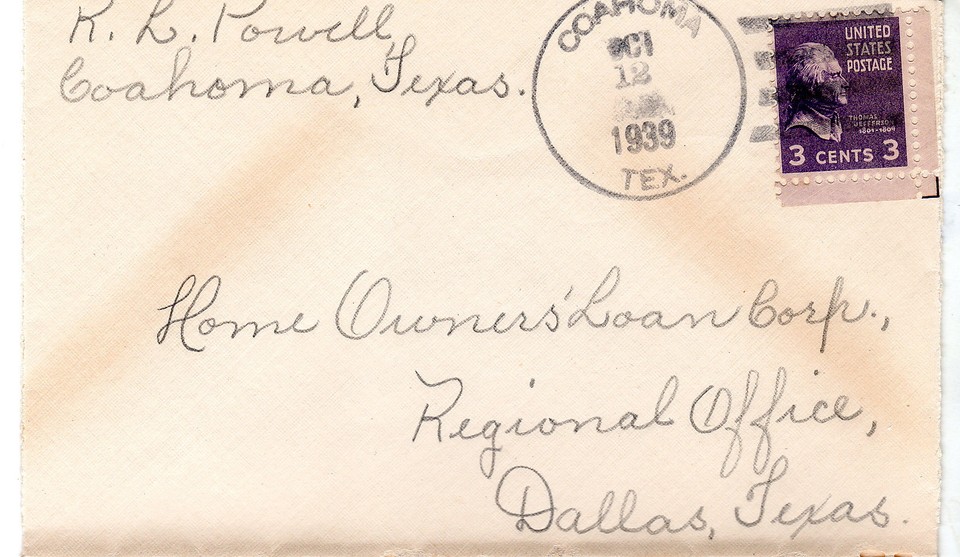 R. L. Powell,
Coahoma, Texas.
COAHOMA
OCT
12
1939
TEX.
UNITED
STATES
POSTAGE
THOMAS
JEFFERSON
1801-1809
3 CENTS 3
Home Owners' Loan Corp.,
Regional Office,
Dallas, Texas.